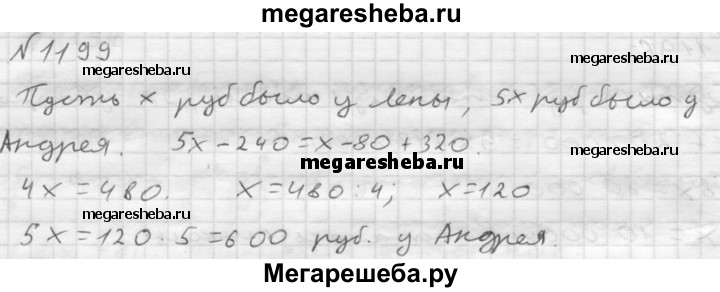 megaresheba.ru
N 1199
megaresheba.ru megaresheba.ru
Пусть x руб было у Лены, 5x руб было у
Андрея. 5x - 240 = x - 80 + 320.
megaresheba.ru megaresheba.ru megaresheba.ru
4x = 480. x = 480 : 4; x = 120
megaresheba.ru megaresheba.ru
5x = 120 · 5 = 600 руб. у Андрея.
Мегарешеба.ру